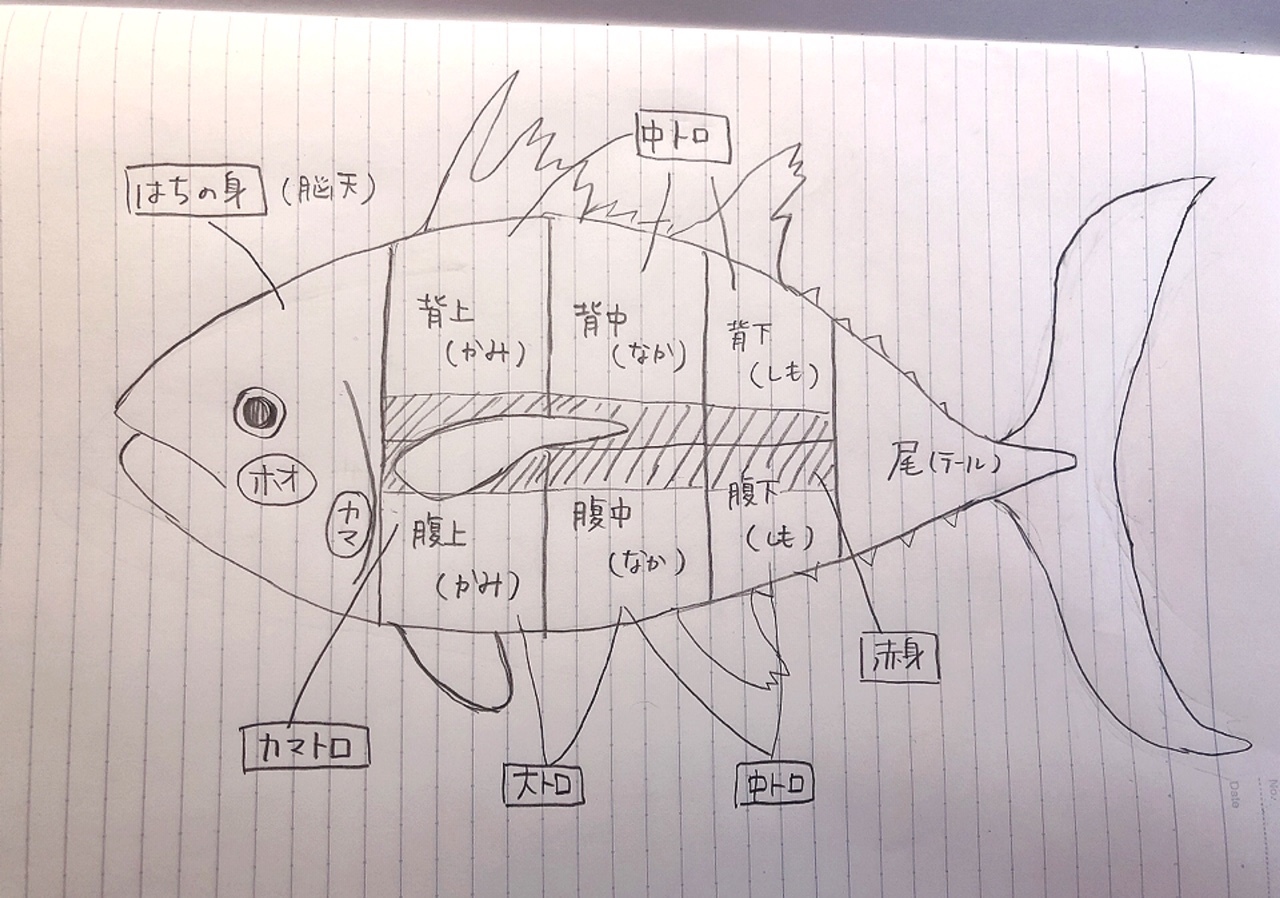 中トロ
はちの身 (脳天)
背上
(かみ)
背中
(なか)
背下
(しも)
ホオ
カマ
尾(テール)
腹上
(かみ)
腹中
(なか)
腹下
(しも)
赤身
カマトロ
大トロ
中トロ
No.
Date